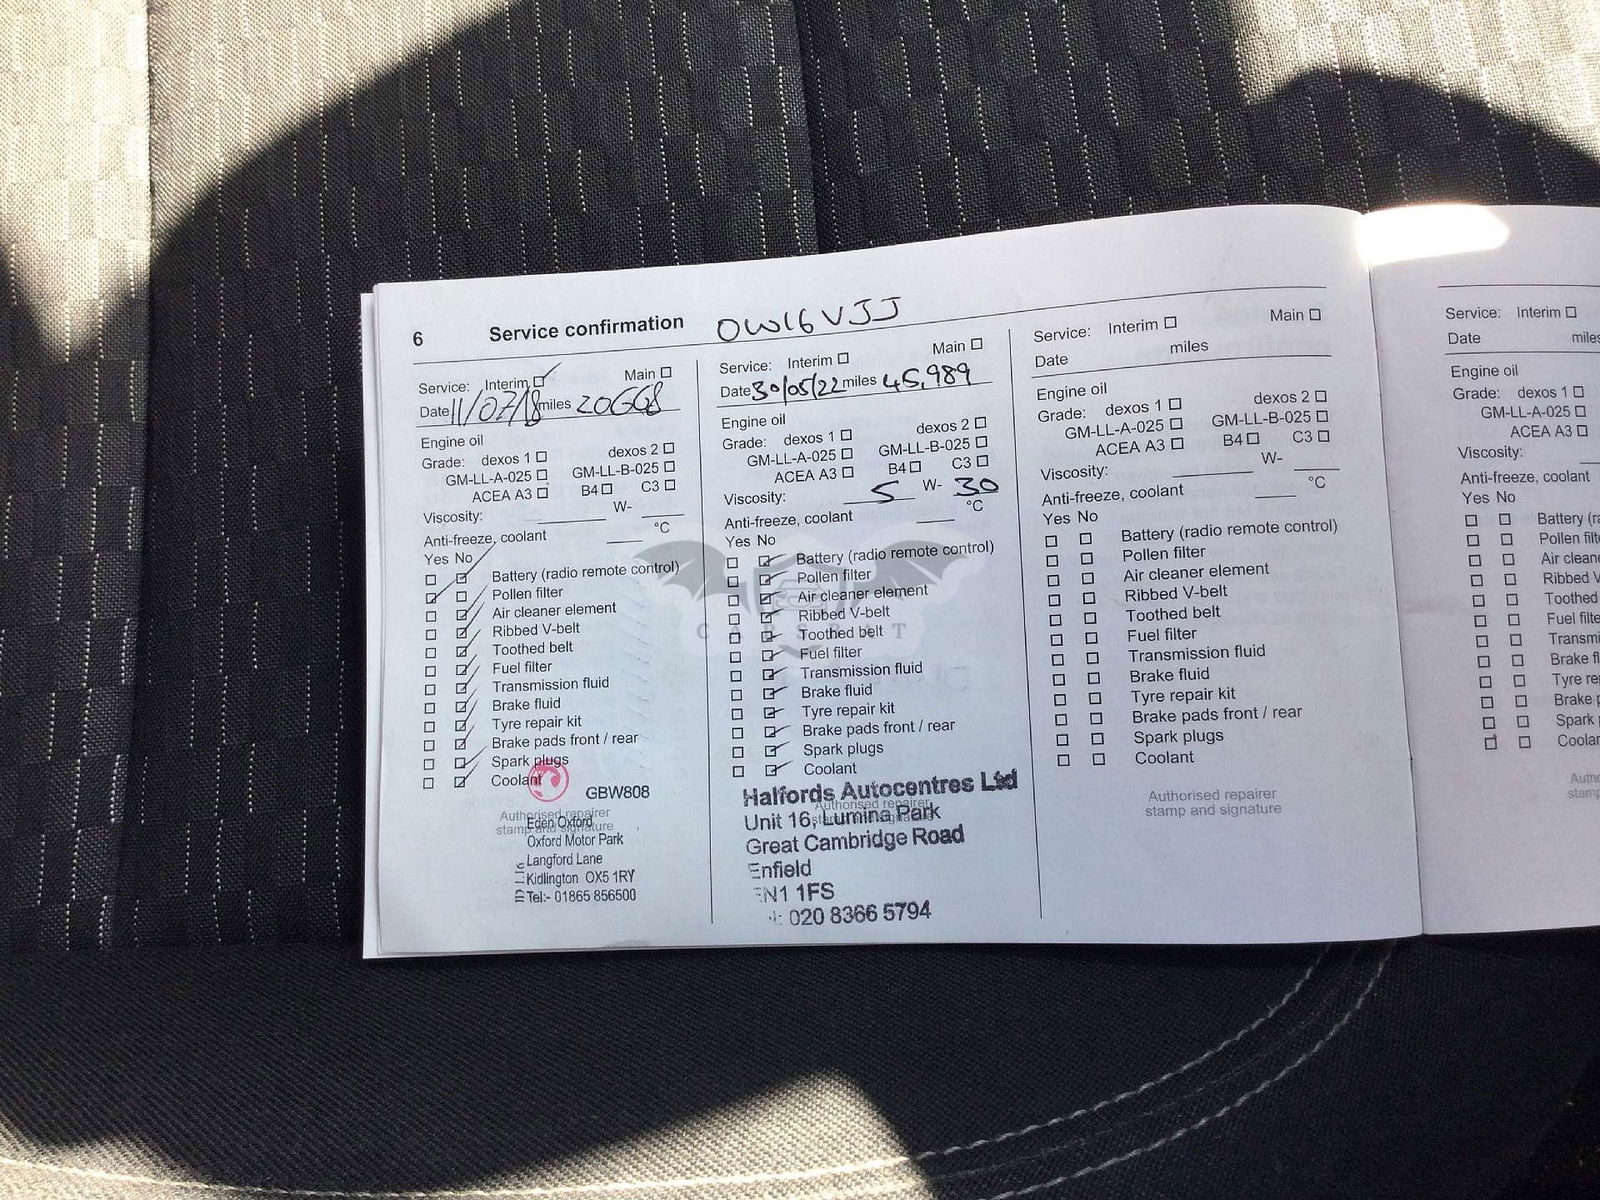 6 Service confirmation OW16VJJ
Service: Interim Main
Date 11/07/18 miles 20668
Engine oil
Grade: dexos 1 dexos 2
GM-LL-A-025 GM-LL-B-025
ACEA A3 B4 C3
Viscosity: W-
Anti-freeze, coolant °C
Yes No
Battery (radio remote control)
Pollen filter
Air cleaner element
Ribbed V-belt
Toothed belt
Fuel filter
Transmission fluid
Brake fluid
Tyre repair kit
Brake pads front / rear
Spark plugs
Coolant
GBW808
Authorised repairer
stamp and signature
Eden Oxford
Oxford Motor Park
Langford Lane
Kidlington OX5 1RY
Tel:- 01865 856500
Service: Interim Main
Date 30/05/22 miles 45,989
Engine oil
Grade: dexos 1 dexos 2
GM-LL-A-025 GM-LL-B-025
ACEA A3 B4 C3
Viscosity: 5 W- 30
Anti-freeze, coolant °C
Yes No
Battery (radio remote control)
Pollen filter
Air cleaner element
Ribbed V-belt
Toothed belt
Fuel filter
Transmission fluid
Brake fluid
Tyre repair kit
Brake pads front / rear
Spark plugs
Coolant
CARSPAT
Halfords Autocentres Ltd
Authorised repairer
Unit 16, Lumina Park
Great Cambridge Road
Enfield
EN1 1FS
020 8366 5794
Service: Interim Main
Date miles
Engine oil
Grade: dexos 1 dexos 2
GM-LL-A-025 GM-LL-B-025
ACEA A3 B4 C3
Viscosity: W-
Anti-freeze, coolant °C
Yes No
Battery (radio remote control)
Pollen filter
Air cleaner element
Ribbed V-belt
Toothed belt
Fuel filter
Transmission fluid
Brake fluid
Tyre repair kit
Brake pads front / rear
Spark plugs
Coolant
Authorised repairer
stamp and signature
Service: Interim
Date miles
Engine oil
Grade: dexos 1
GM-LL-A-025
ACEA A3
Viscosity:
Anti-freeze, coolant
Yes No
Battery (ra
Pollen filte
Air cleane
Ribbed V
Toothed
Fuel filte
Transmi
Brake fl
Tyre re
Brake p
Spark p
Coolar
Autho
stamp